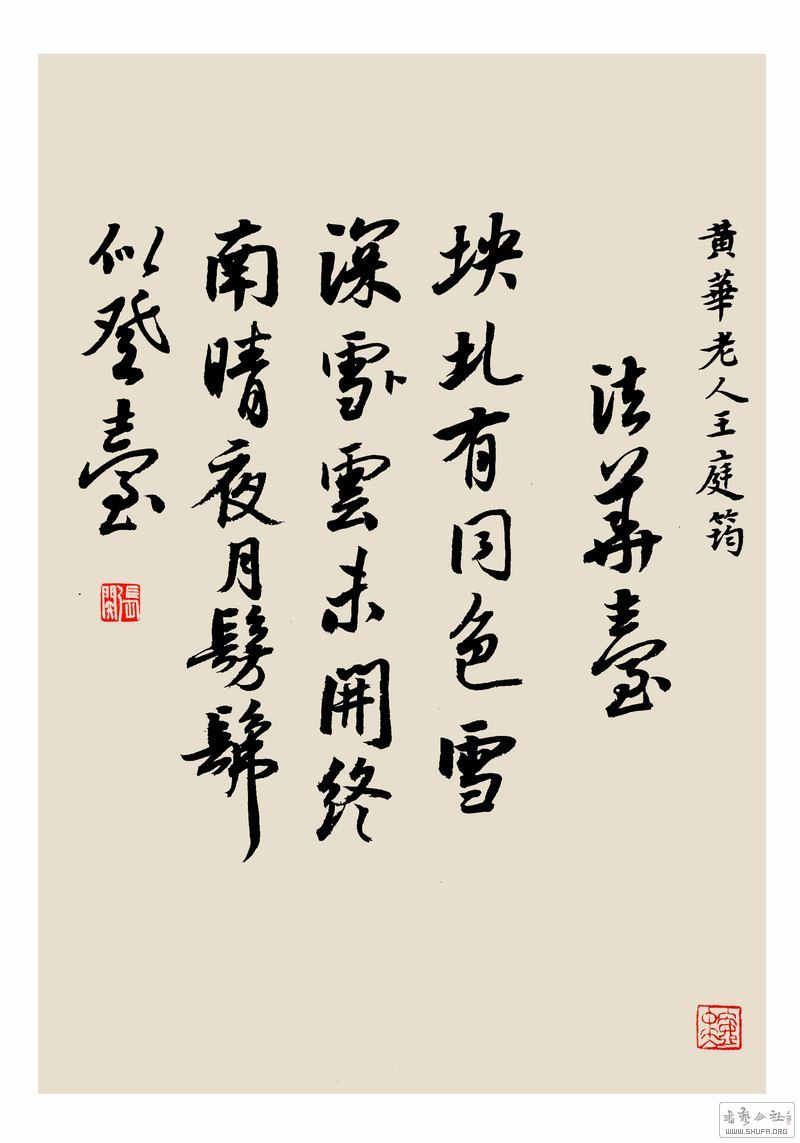 黄華老人王庭筠
法華臺
坱圠有同色雪
深雪卜雲未開終
南晴夜月髣髴
似登臺
書藝公社
WWW.SHUFA.ORG